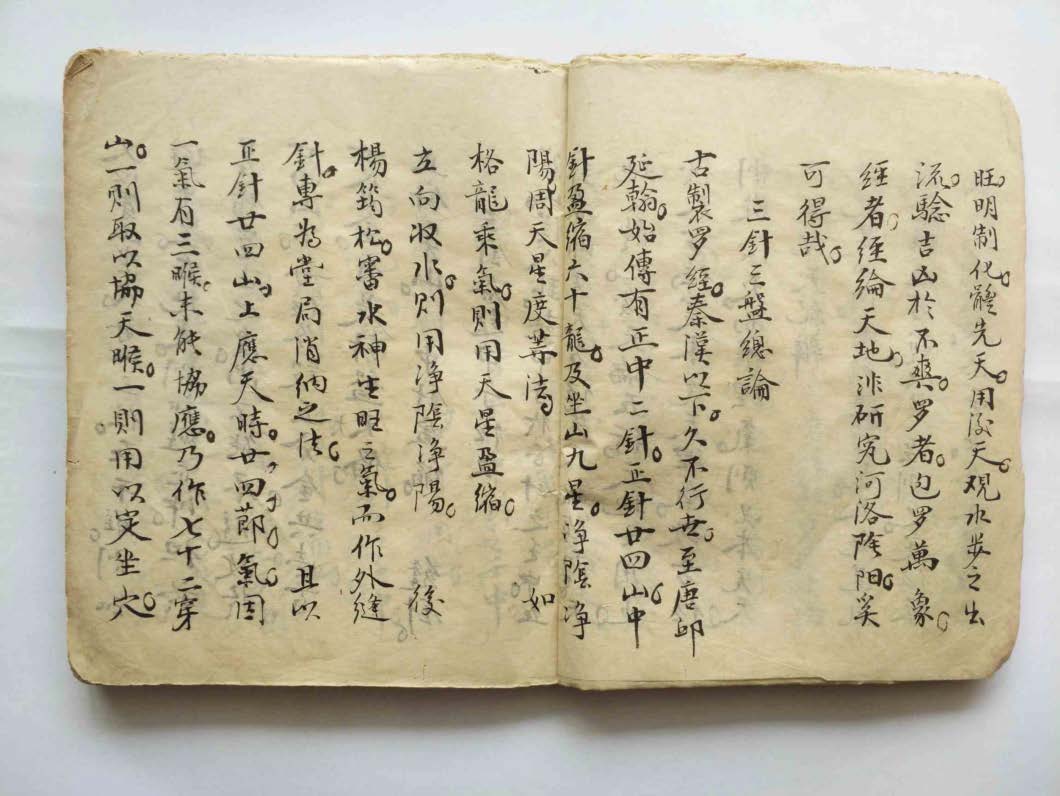 旺。明制化。體先天。用後天。观水步之出
流。驗吉凶於不爽。罗者。包罗萬象。
經者。經綸天地。非研究河洛陰阳。奚
可得哉。
三針三盤總論
古製罗經。秦漢以下。久不行世。至唐邱
延翰。始傳有正中二針。正針廿四山。中
針盈縮六十龍。及坐山九星。淨陰淨
陽。周天星度等法。如
格龍乘氣。則用天星盈縮。
立向收水。則用淨陰淨陽。後
楊筠松。審水神生旺之氣。而作外縫
針。專為堂局消納之法。且以
正針廿四山。上應天時。廿四節。氣因
一氣有三暱。未能協應。乃作七十二穿
山。一則取以協天暱。一則用以定坐穴。